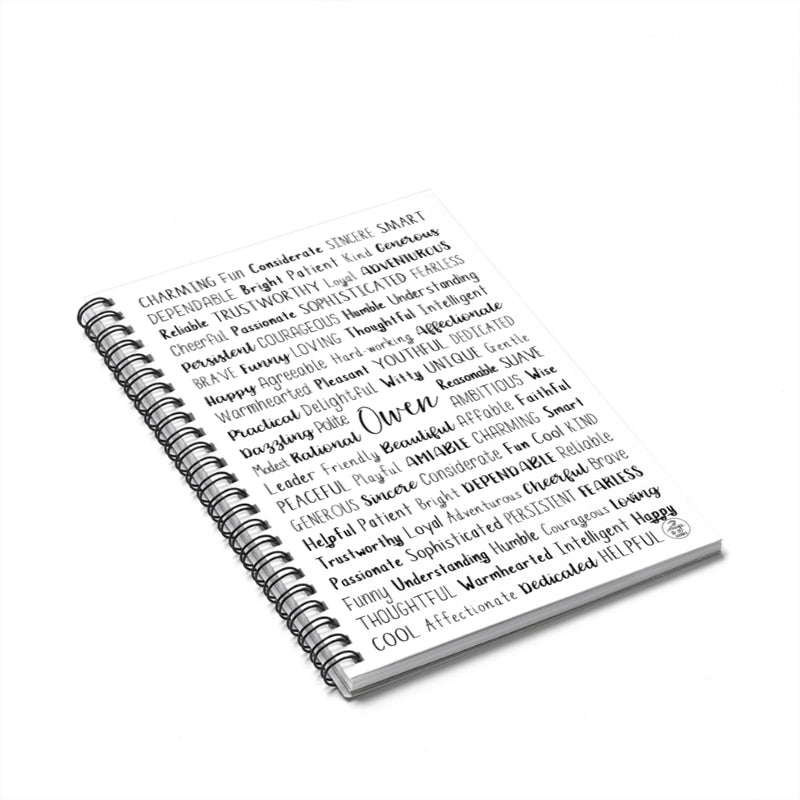 CHARMING Fun Considerate SINCERE SMART
DEPENDABLE Bright Patient Kind Generous
Reliable TRUSTWORTHY Loyal ADVENTUROUS
Cheerful Passionate SOPHISTICATED FEARLESS
Persistent COURAGEOUS Humble Understanding
BRAVE Funny LOVING Thoughtful Intelligent
Happy Agreeable Hard-working Affectionate
Warmhearted Pleasant YOUTHFUL DEDICATED
Practical Delightful Witty UNIQUE Gentle
Dazzling Polite Owen Reasonable SUAVE
Modest Rational AMBITIOUS Wise
Leader Friendly Beautiful Affable Faithful
PEACEFUL Playful AMIABLE CHARMING Smart
GENEROUS Sincere Considerate Fun Cool KIND
Helpful Patient Bright DEPENDABLE Reliable
Trustworthy Loyal Adventurous Cheerful Brave
Passionate Sophisticated PERSISTENT FEARLESS
Funny Understanding Humble Courageous Loving
THOUGHTFUL Warmhearted Intelligent Happy
COOL Affectionate Dedicated HELPFUL